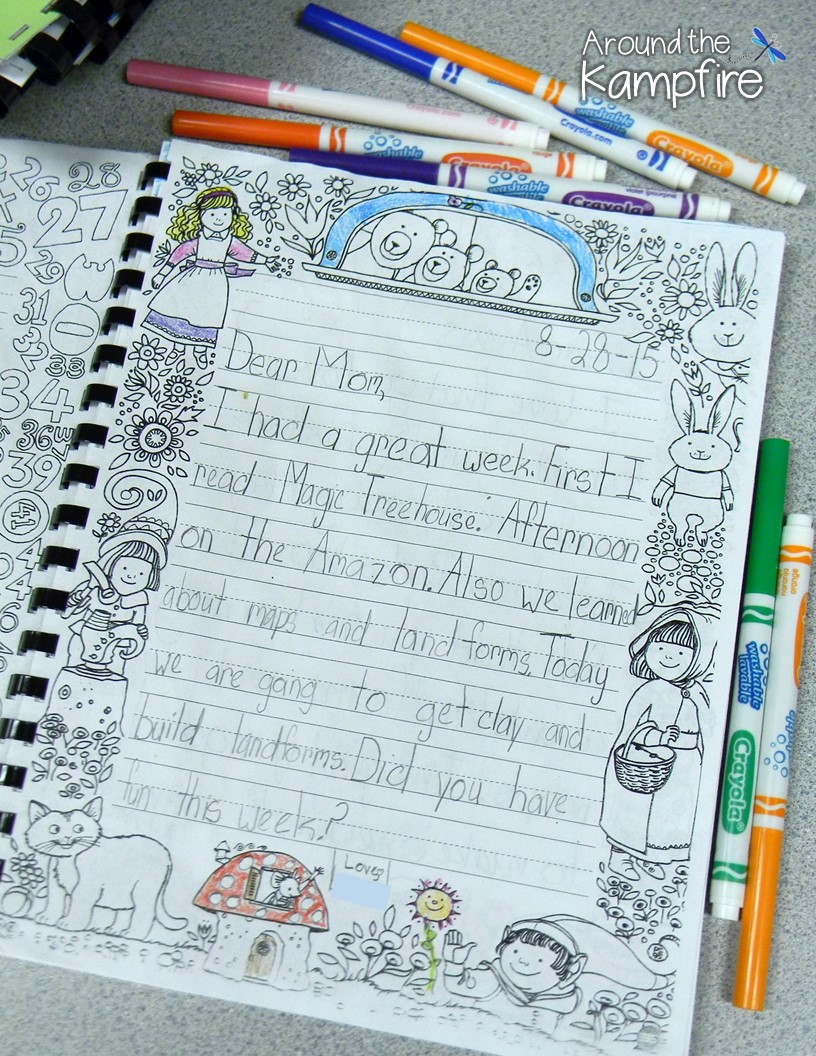 Around the
Kampfire
washable
Crayola.com
Crayola
washable
Crayola
washable
Crayola
8-28-15
Dear Mom,
I had a great week. First I
read Magic Treehouse: Afternoon
on the Amazon. Also we learned
about maps and landforms. Today
we are gong to get clay and
build landforms. Did you have
fun this week.?
Love,
26
28
27
29
31
32
33
34
36
39
41
washable
lavable
Crayola
orange